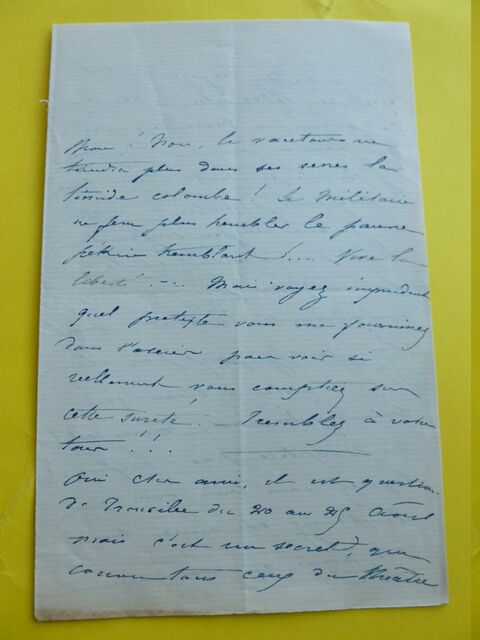 Non ! Non, le vautour ne
tiendra plus dans ses serres la
timide colombe ! Le Militaire
ne fera plus trembler le pauvre
pékin tremblant !.... Vive la
liberté ! ... Mais voyez imprudent
quel prétexte vous me fournirez
dans l'avenir pour voir si
réellement vous comptiez sur
cette sûreté ! Tremblez à votre
tour ! ! !
Oui cher ami, il est question
de Trouville du 20 au 25 Août
mais c'est un secret, que
comme tous ceux du théâtre